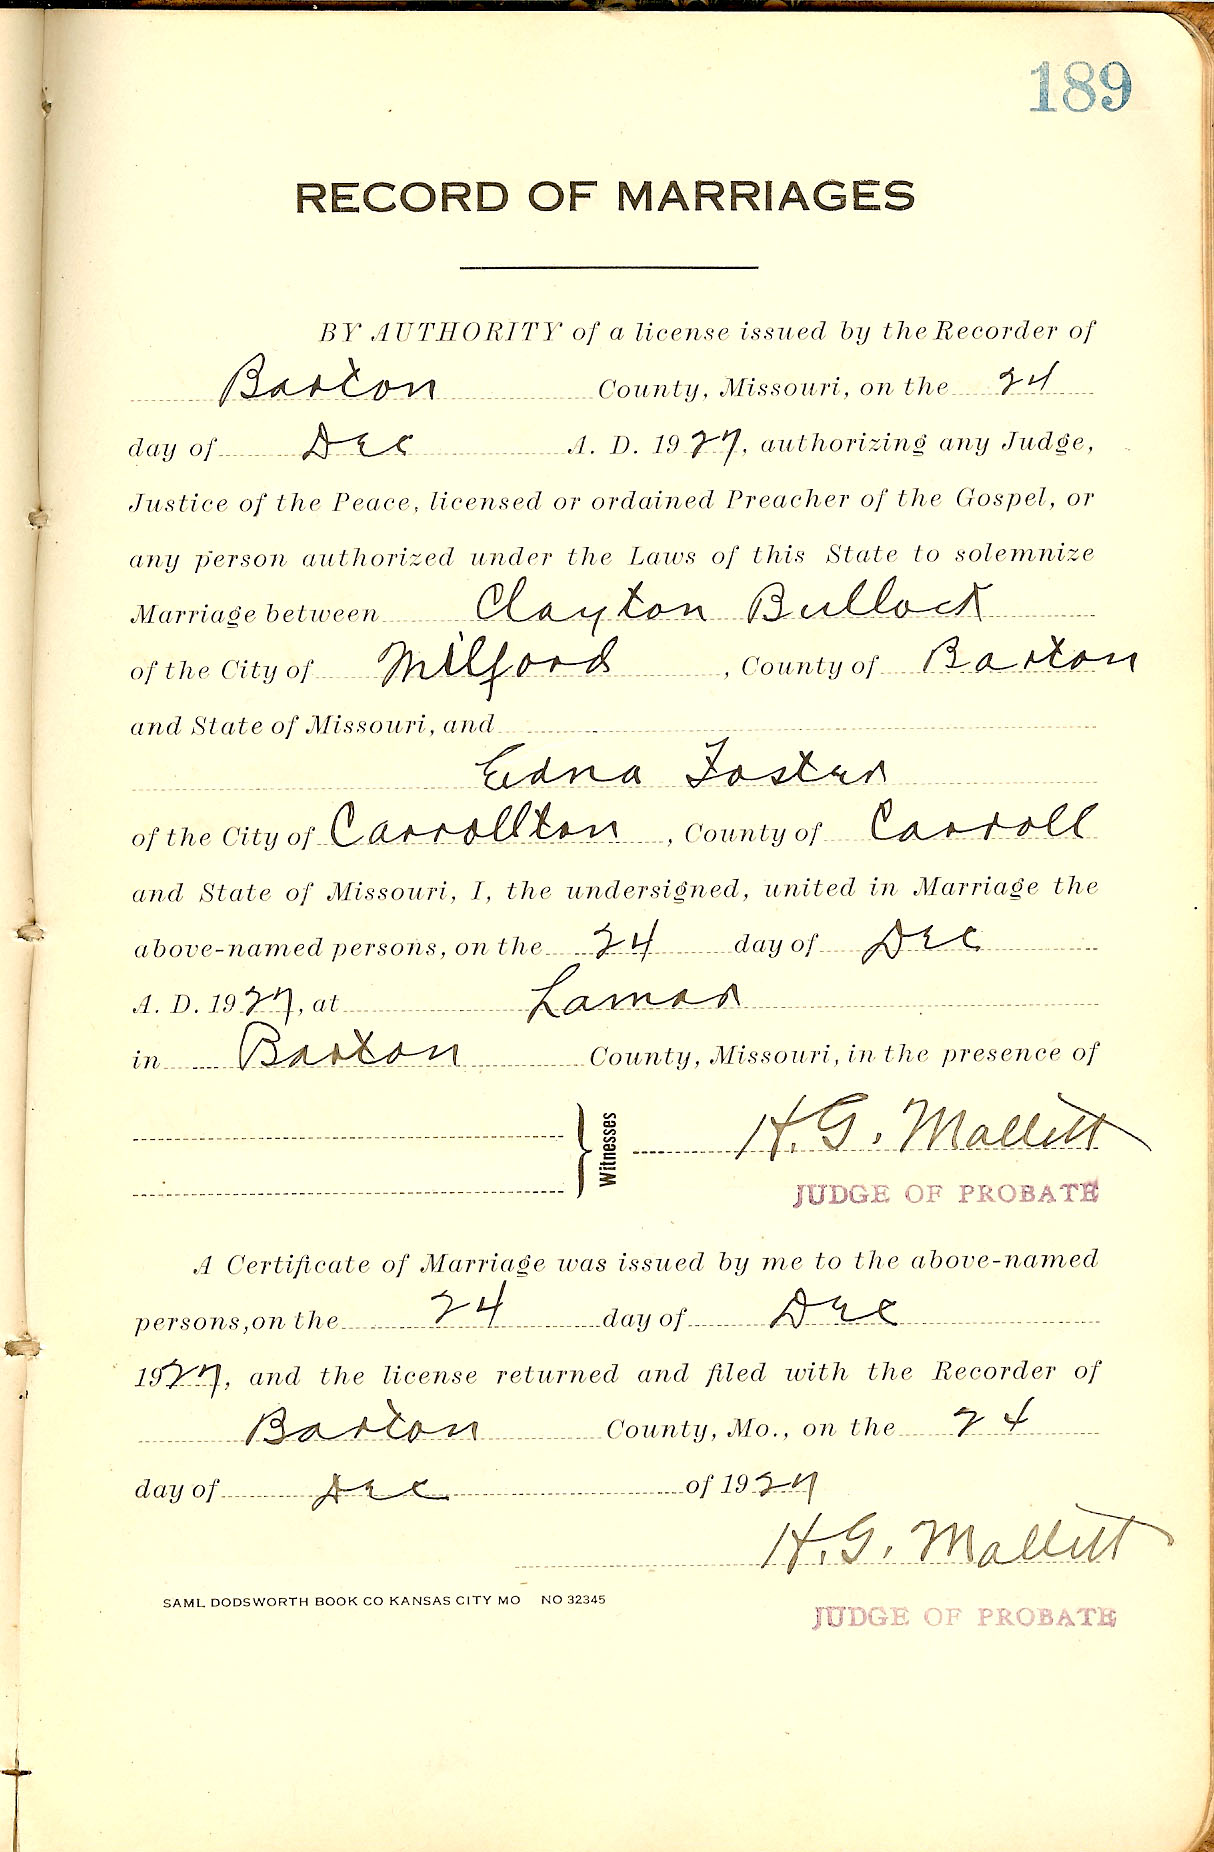 189
RECORD OF MARRIAGES
BY AUTHORITY of a license issued by the Recorder of
Barton County, Missouri, on the 24
day of Dec A. D. 1927, authorizing any Judge,
Justice of the Peace, licensed or ordained Preacher of the Gospel, or
any person authorized under the Laws of this State to solemnize
Marriage between Clayton Bullock
of the City of Milford, County of Barton
and State of Missouri, and
Edna Foster
of the City of Carrollton, County of Carroll
and State of Missouri, I, the undersigned, united in Marriage the
above-named persons, on the 24 day of Dec
A. D. 1927, at Lamar
in Barton County, Missouri, in the presence of
Witnesses H. G. Mallett
JUDGE OF PROBATE
A Certificate of Marriage was issued by me to the above-named
persons, on the 24 day of Dec
1927, and the license returned and filed with the Recorder of
Barton County, Mo., on the 24
day of Dec of 1927
H. G. Mallett
SAML DODSWORTH BOOK CO KANSAS CITY MO NO 32345
JUDGE OF PROBATE